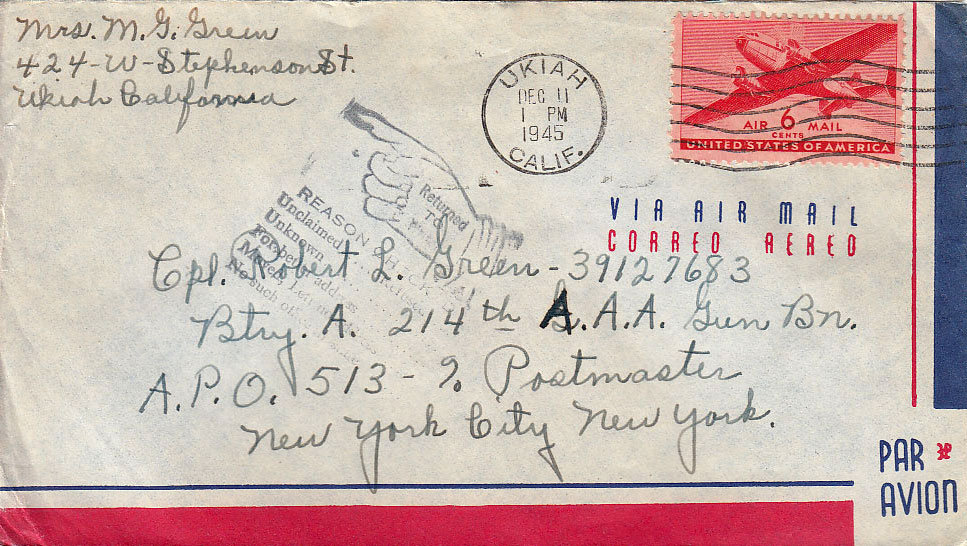 Mrs. M. G. Green
424-W-Stephenson St.
Ukiah California
UKIAH
DEC 11
1 PM
1945
CALIF.
AIR 6 MAIL
CENTS
UNITED STATES OF AMERICA
VIA AIR MAIL
CORREO AEREO
Returned
TO
REASON
Unclaimed
Unknown
No such of
Cpl. Robert L. Green - 39127683
Btry. A. 214th A.A.A. Gun Bn.
A.P.O. 513 - % Postmaster
New York City New York.
PAR
AVION